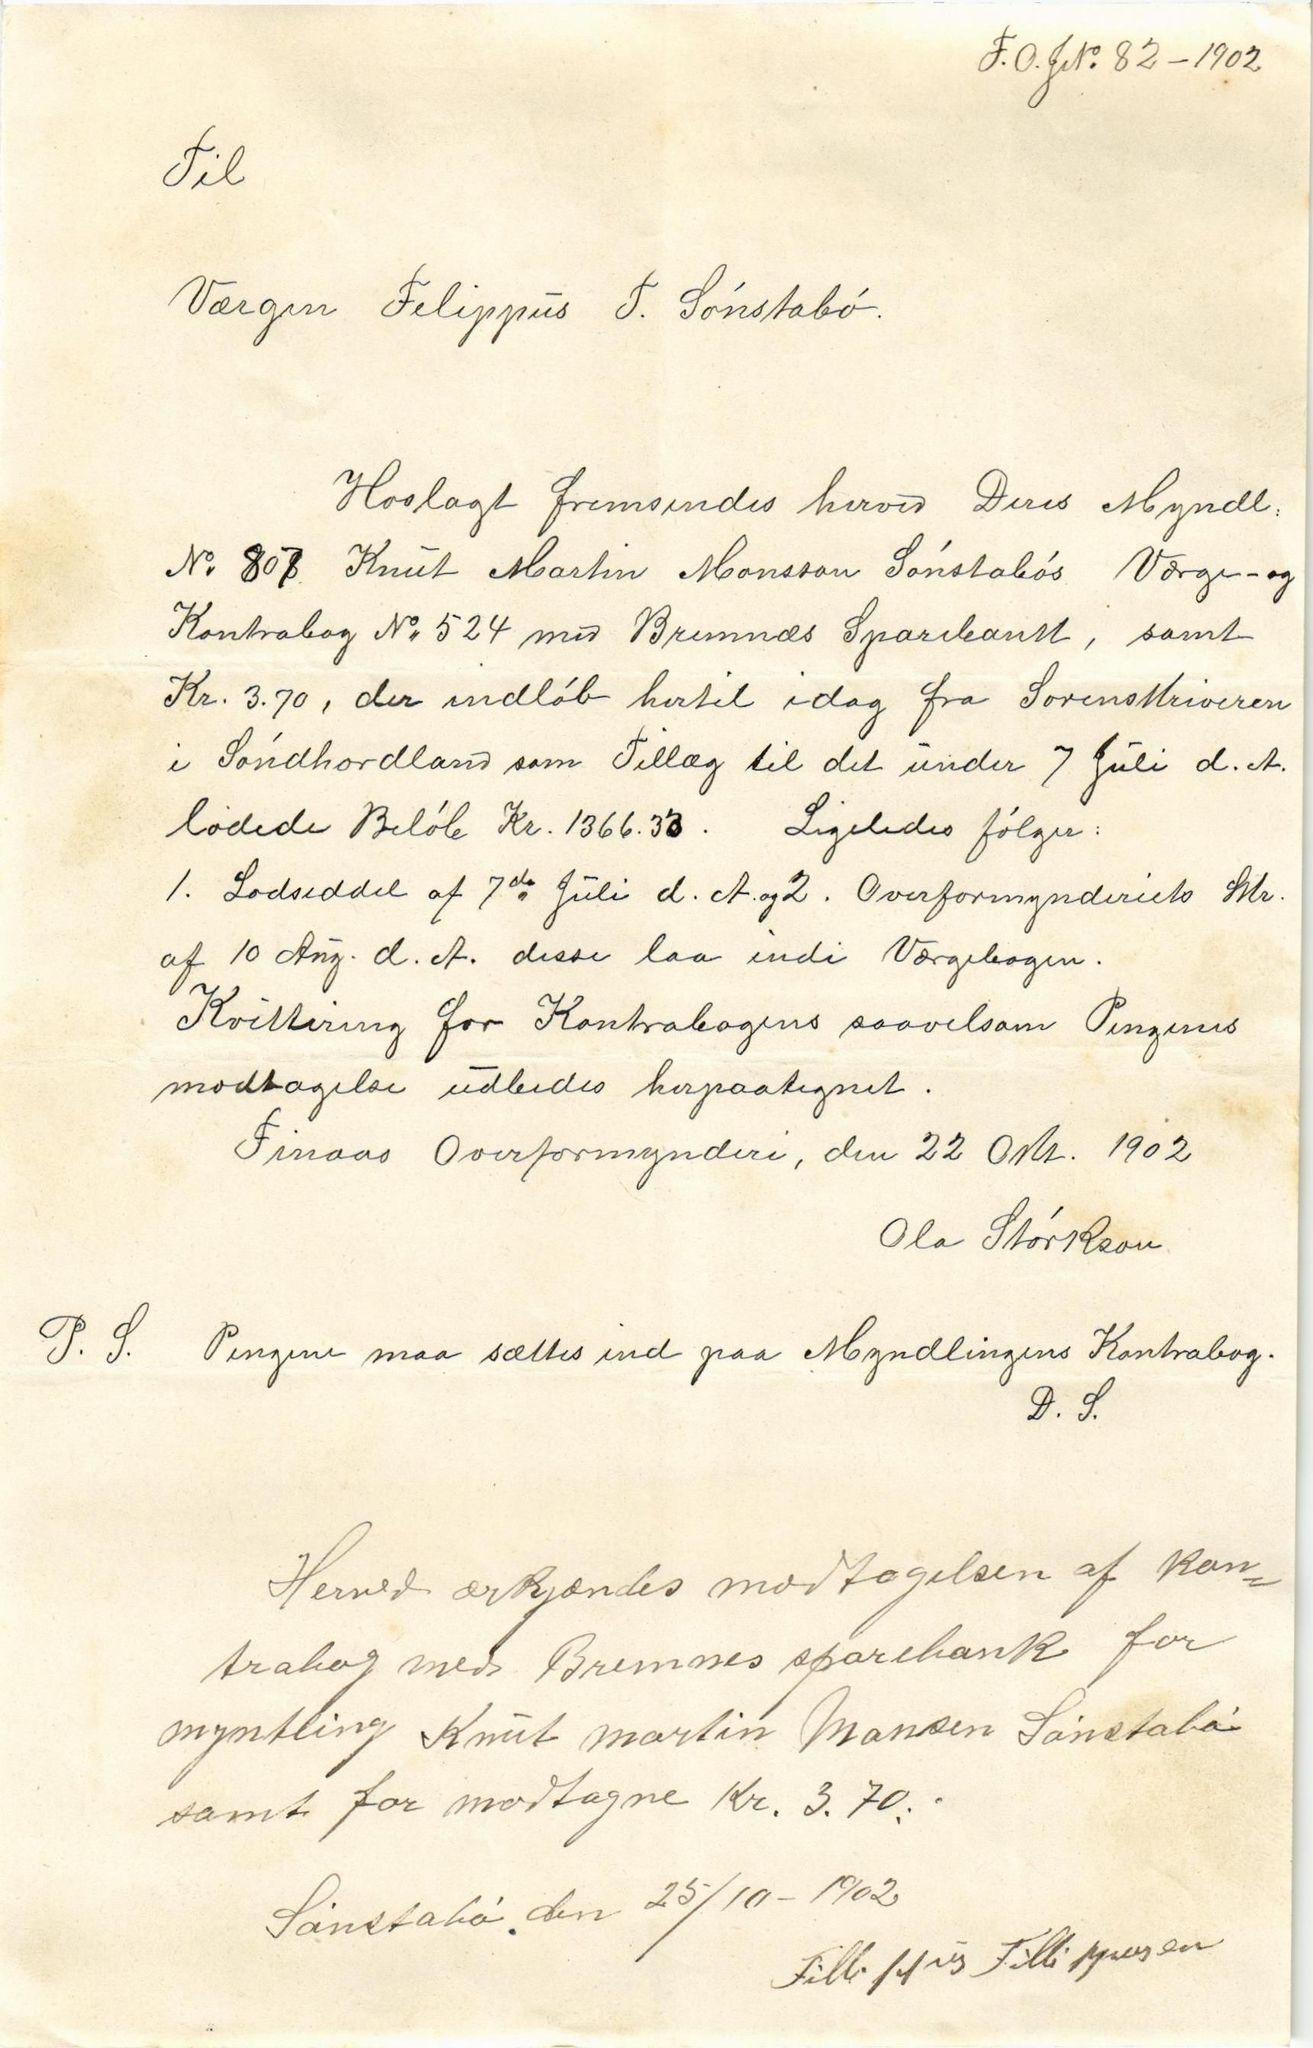 F. O. J.№. 82 – 1902
Til
Værgen Felippus F. Sónstabó.
Hoslagt fremsendes herved Deres Myndl.
№. 807 Knut Martin Monsson Sónstabós Værge- og
Kontrabog №. 524 med Bremnæs Sparebank, samt
Kr. 3.70, der indlób hertil idag fra Sorenskriveren
i Sóndhordland som Tillæg til det under 7 Juli d. A.
lodede Belób Kr. 1366.33. Ligeledes fólger:
1. Lodseddel af 7de Juli d. A. og 2. Overformynderiets Skr.
af 10 Aug. d. A. disse laa indi Værgebogen.
Kvittering for Kontrabogens saavelsom Pengenes
modtagelse udbedes herpaategnet.
Finaas Overformynderi, den 22 Okt. 1902
Ola Stórkson
P. S. Pengene maa sættes ind paa Myndlingens Kontrabog.
D. S.
Herved ærkjændes modtagelsen af Kon=
trabog med Bremnes sparebank for
myntling Knut martin Monsen Sónstabó
samt for modtagne Kr. 3.70.
Sónstabó. den 25/10 – 1902
Fillippus Fillippusen